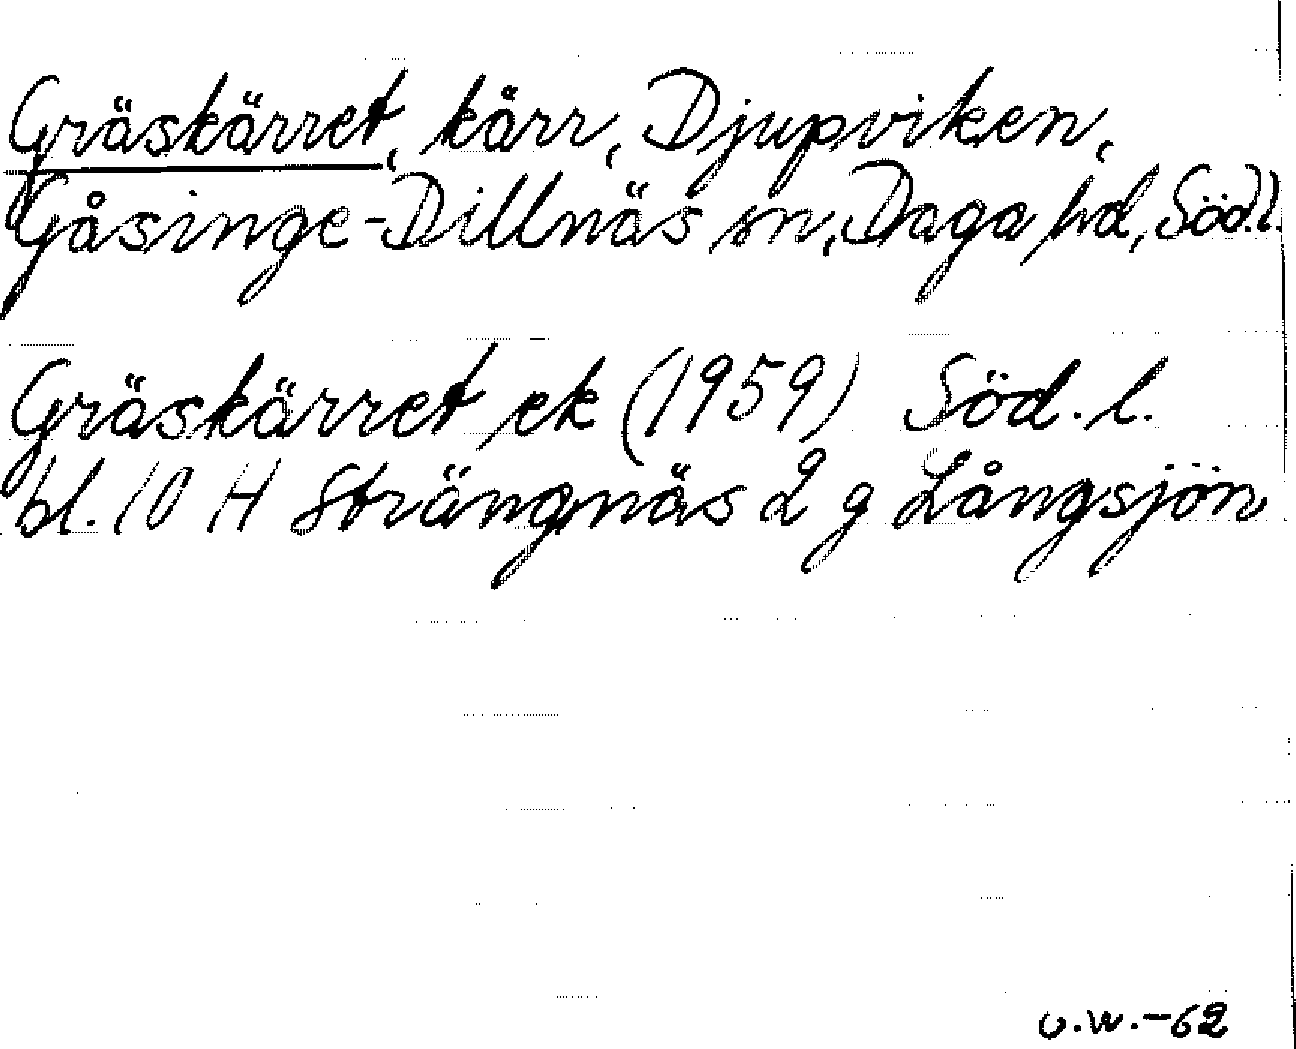 Gräskärret, kärr, Djupviken,
Gåsinge-Dillnäs sn, Daga hd, Söd.l.
Gräskärret ek (1959) Söd. l.
bl. 10 H Strängnäs 2 g Långsjön
U.W.-62